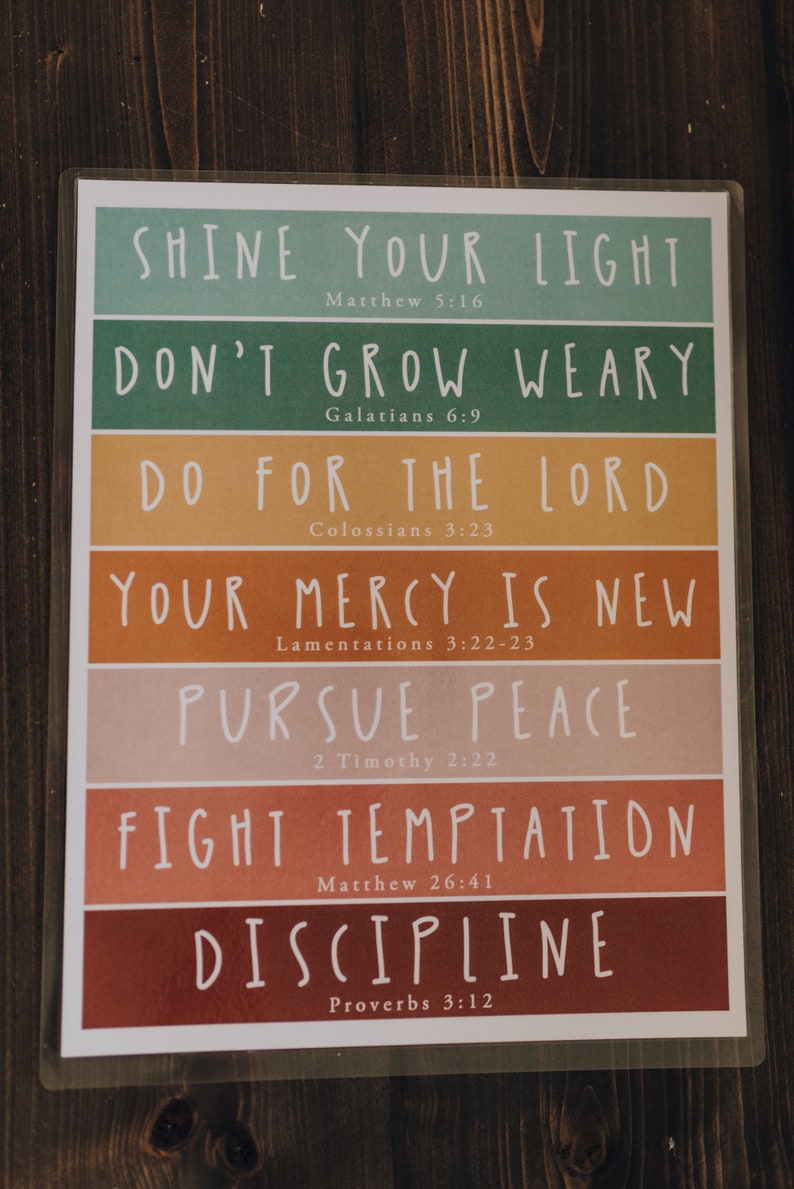 SHINE YOUR LIGHT
Matthew 5:16
DON'T GROW WEARY
Galatians 6:9
DO FOR THE LORD
Colossians 3:23
YOUR MERCY IS NEW
Lamentations 3:22-23
PURSUE PEACE
2 Timothy 2:22
FIGHT TEMPTATION
Matthew 26:41
DISCIPLINE
Proverbs 3:12